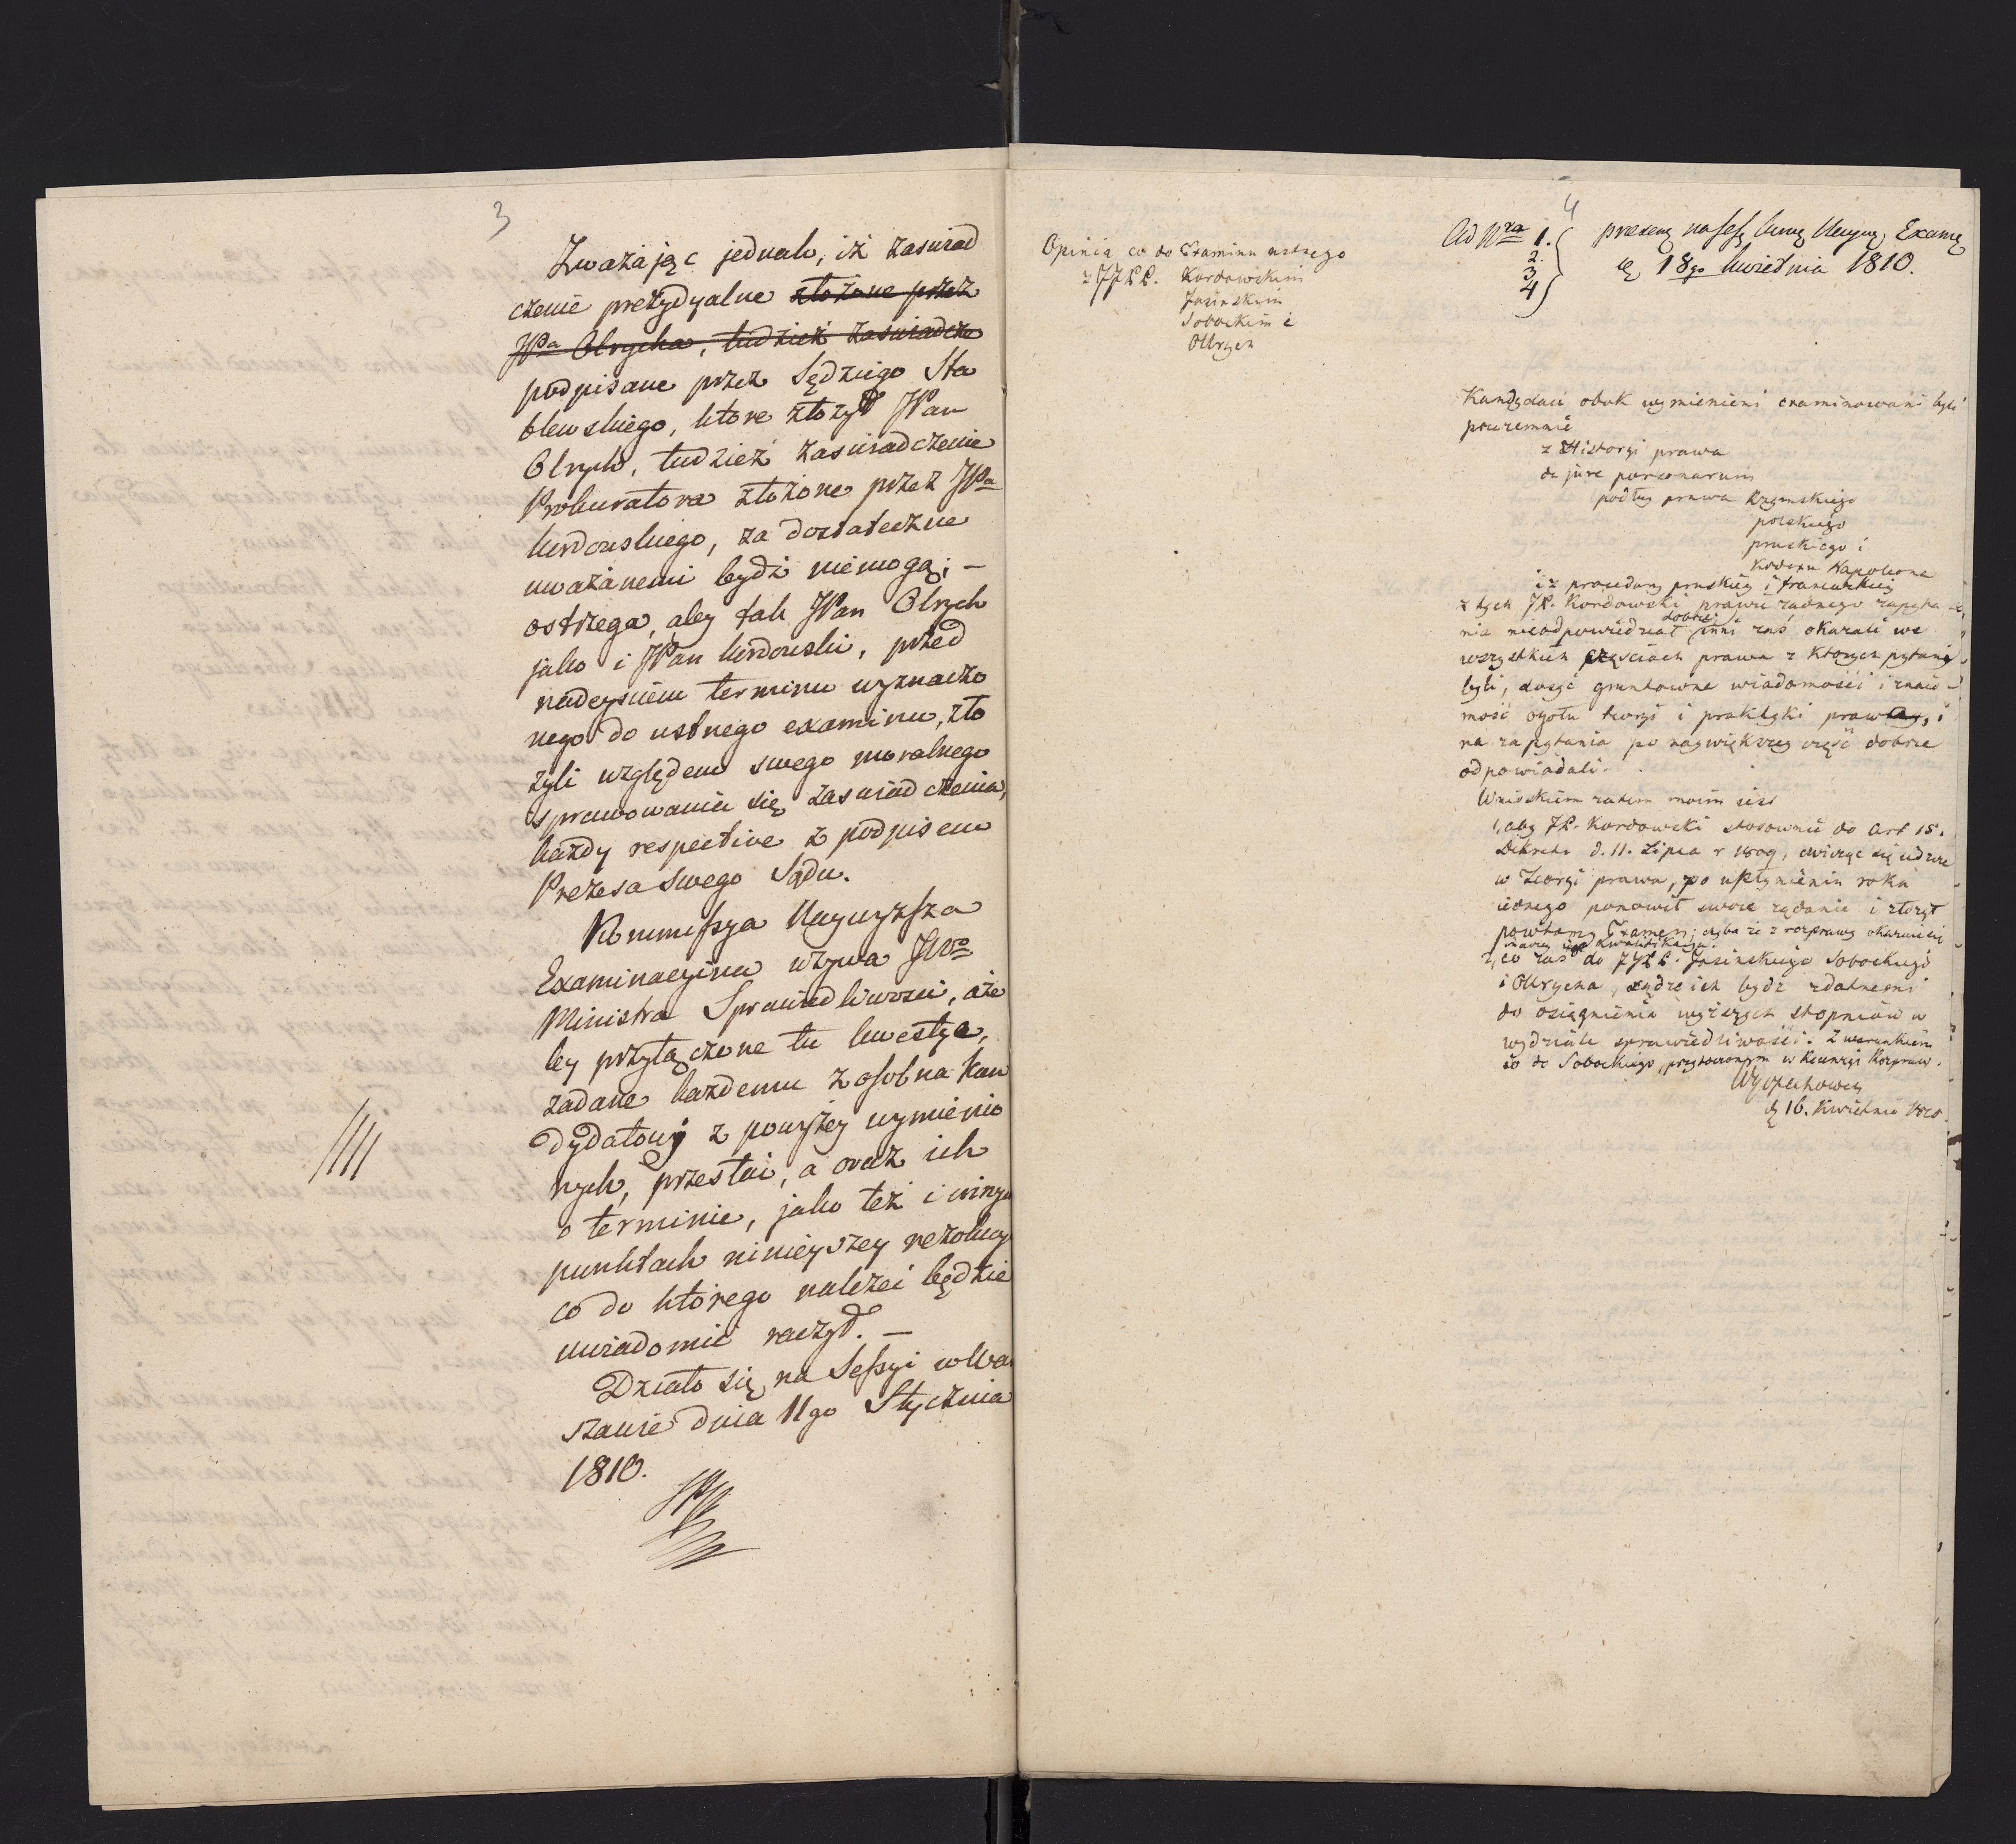 3
Zważaiąc jednak, iż zaświad
czenie prezydyalne złożone przez
JPa Olrycha, tudzież zaświadcze
podpisane przez Sędziego Sta
blewskiego, ktore złożył JPan
Olrych, tudzież zaświadczenie
Prokuratora złożone przez JPa
Kurdowskiego, za dostateczne
uważanemi bydź niemogą; —
ostrzega, aby tak JPan Olrych
jako i JPan Kurdowski, przed
nadeyściem terminu wyznaczo
nego do ustnego examinu, zło
żyli względem swego moralnego
sprawowania się zaświadczenia,
każdy respective z podpisem
Prezesa swego Sądu.
Kommissya Naywyższa
Examinacyina wzywa JWo
Ministra Sprawiedliwości, aże
by przyłączone tu kwestye,
zadane każdemu z osobna kan
dydatowi z powyżey wymienio
nych, przesłał, a oraz ich
o terminie, jako też i innych
punktach ninieyszey rezolucyi
co do którego należeć będzie
uwiadomić raczył. —
Działo się na Sessyi w War
szawie dnia 11go Stycznia
1810.
4
Ad Nra 1.
2.
3
4
Examę
18go kwietnia 1810.
Opinia co do Examinu ustnego
z JJPP. Kordowskim
Jasinskim
Sobockim i
Ollrych
Kandydaci obok wymienieni examinowani byli
pouzemnie
z Historyi prawa
de jure personarum
podług prawa Rzymskiego
polskiego
pruskiego i
Kodexu Napoleona
i z procedury pruskiey i francuzkiey
z tych JP. Kordowski prawie żadnego zapyta
nia nieodpowiedział dobrze; inni zaś okazali we
wszystkich częściach prawa z ktorych pytani
byli, dosyć gruntowne wiadomości i znaio
mość ogołu teoryi i praktyki prawa, i
na zapytania po naywiększey części dobrze
odpowiadali.
Wnioskiem zatem moim iest
1, aby JP. Kordowski stosownie do art 15.
Dekretu d. 11. Lipca r 1809, cwicząc się
w Teoryi prawa, po upłynieniu roku
iednego ponowił swoie żądanie i złożył
powtorny Examen; chyba że z rozprawy okazałaby się
kwalifikacya.
2, co zaś do JJPP. Jasinskiego Sobockiego
i Ollrycha, sądzę ich bydź zdatnemi
do osiągnienia wyższych stopniów w
wydziale sprawiedliwości. Z warunkiem
co do Sobockiego, przytoczonym w Recenzyi Rozpraw.
Wyczechowsky
d. 16. Kwietnia 1810.